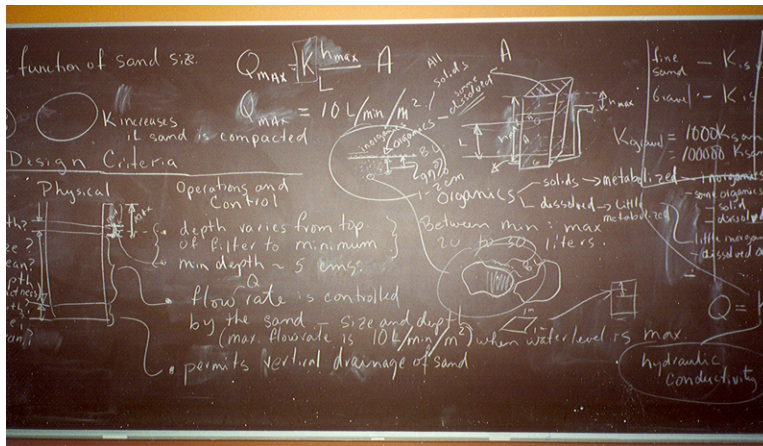 function of sand size.
K increases
if sand is compacted
Design Criteria
Physical
Operations and
Control
depth varies from top
of filter to minimum
min depth ~ 5 cms.
flow rate is controlled
Q
by the sand - size and depth
(max. flowrate is 10 L/min/m²) when water level is max.
permits vertical drainage of sand
Q MAX = K hmax A
L
Q MAX = 10 L/min/m²
All
solids
some
dissolved
inorganics
organics
1-2cm
Organics
solids → metabolized
dissolved → little
metabolized
Between min & max
20 to 30
liters.
A
hmax
L
hmax
1m
fine
sand - K is
Gravel - K is
K gravel = 1000 K sand
100000 K sand
inorganics
some organics
solid
dissolved
little inorganic
dissolved
Q =
hydraulic
conductivity